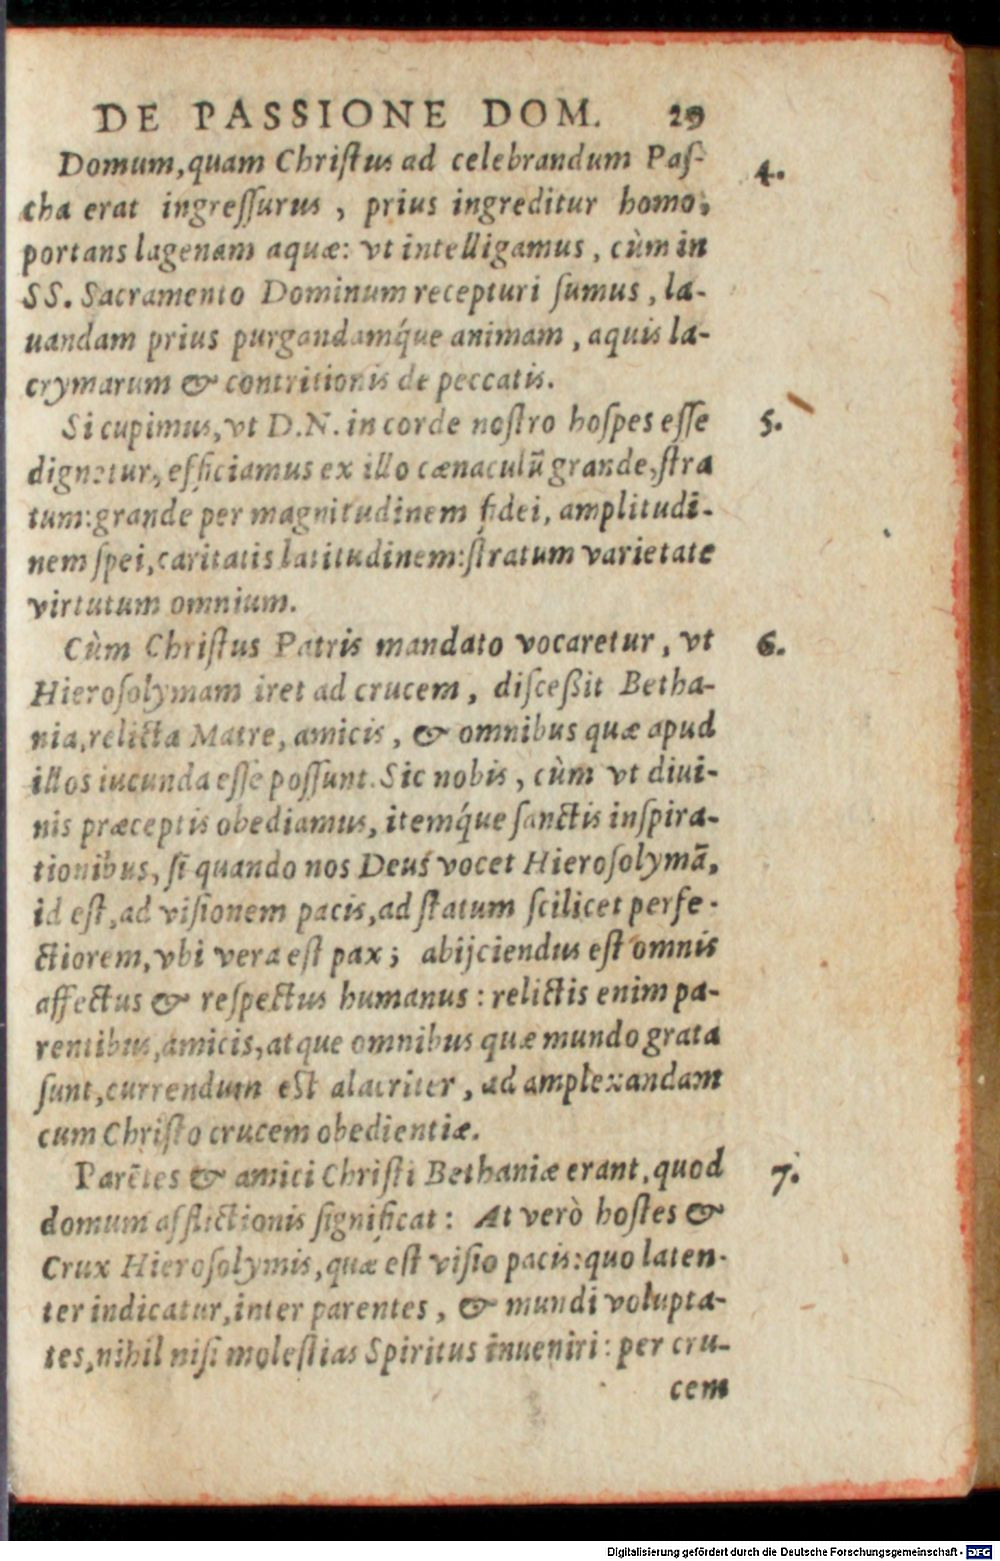 DE PASSIONE DOM. 29
Domum, quam Christus ad celebrandum Pas- 4.
cha erat ingressurus, prius ingreditur homo,
portans lagenam aquæ: vt intelligamus, cùm in
SS. Sacramento Dominum recepturi sumus, la-
uandam prius purgandamq́ue animam, aquis la-
crymarum & contritionis de peccatis.
Si cupimus, vt D.N. in corde nostro hospes esse 5.
dignetur, efficiamus ex illo cænaculũ grande, stra
tum: grande per magnitudinem fidei, amplitudi-
nem spei, caritatis latitudinem: stratum varietate
virtutum omnium.
Cùm Christus Patris mandato vocaretur, vt 6.
Hierosolymam iret ad crucem, disceßit Betha-
nia, relicta Matre, amicis, & omnibus quæ apud
illos iucunda esse possunt. Sic nobis, cùm vt diui-
nis præceptis obediamus, itemq́ue sanctis inspira-
tionibus, si quando nos Deus vocet Hierosolymã,
id est, ad visionem pacis, ad statum scilicet perfe-
ctiorem, vbi vera est pax; abijciendus est omnis
affectus & respectus humanus: relictis enim pa-
rentibus, amicis, atque omnibus quæ mundo grata
sunt, currendum est alacriter, ad amplexandam
cum Christo crucem obedientiæ.
Parẽtes & amici Christi Bethaniæ erant, quod 7.
domum afflictionis significat: At verò hostes &
Crux Hierosolymis, quæ est visio pacis: quo laten-
ter indicatur, inter parentes, & mundi volupta-
tes, nihil nisi molestias Spiritus inueniri: per cru-
cem
Digitalisierung gefördert durch die Deutsche Forschungsgemeinschaft - DFG